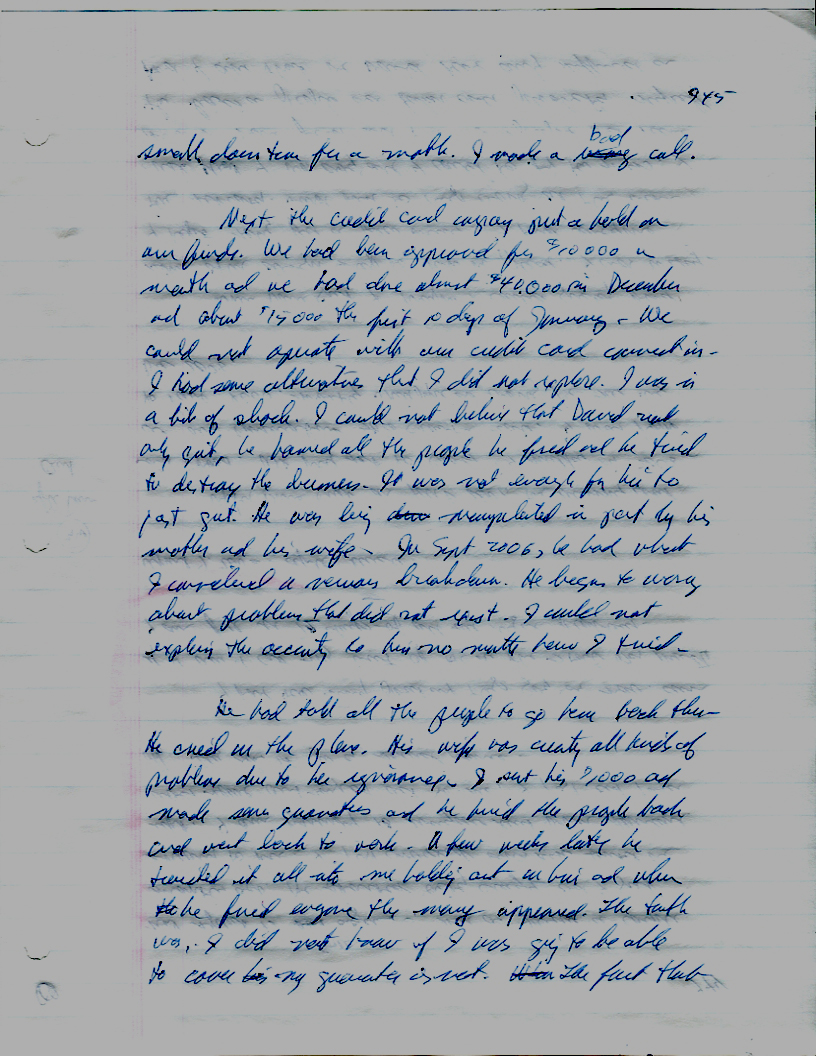 945
small down turn for a month. I made a bad call.
Next the credit card company put a hold on
our funds. We had been approved for $10000 a
month ad we had done almost $40,000 in December
ad about $15000 the first 10 days of January - We
could not operate with our credit card connection -
I had some alternatives that I did not explore. I was in
a bit of shock. I could not believe that David not
only quit, he hired all the people he fired ad he tried
to destroy the business. It was not enough for him to
just quit. He was being manipulated in part by his
mother ad his wife - In Sept 2006, he had what
I considered a nervous breakdown. He began to worry
about problems that did not exist. I could not
explain the to him no matter how I tried -
He had told all the people to go home back then -
He cried on the phone. His wife was creating all kinds of
problems due to her ignorance. I sent him $1000 ad
made some guarantees ad he hired the people back
and went back to work. A few weeks later he
twisted it all into me holding out on him ad when
he fired everyone the money appeared. The truth
was, I did not know if I was going to be able
to cover my guarantee or not. The fact that